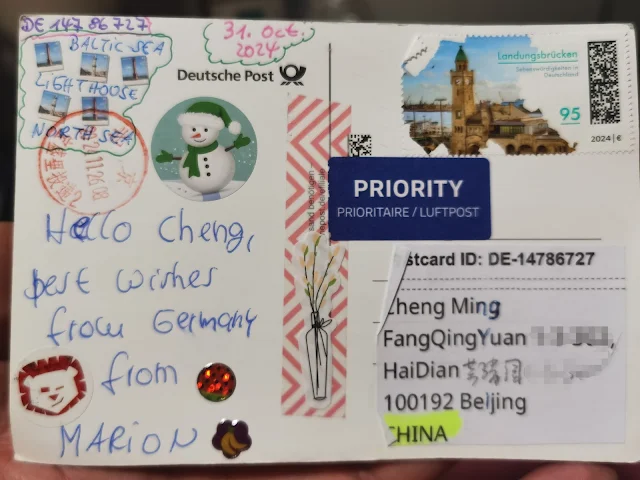 DE 147 86 727
BALTIC SEA
LIGHTHOUSE
NORTH SEA
31. Oct.
2024
Deutsche Post
Landungsbrücken
Sehenswürdigkeiten in
Deutschland
95
2024 | €
PRIORITY
PRIORITAIRE / LUFTPOST
Hello Cheng,
best wishes
from Germany
from
MARION
stcard ID: DE-14786727
heng Ming
FangQingYuan
HaiDian
100192 Beijing
CHINA